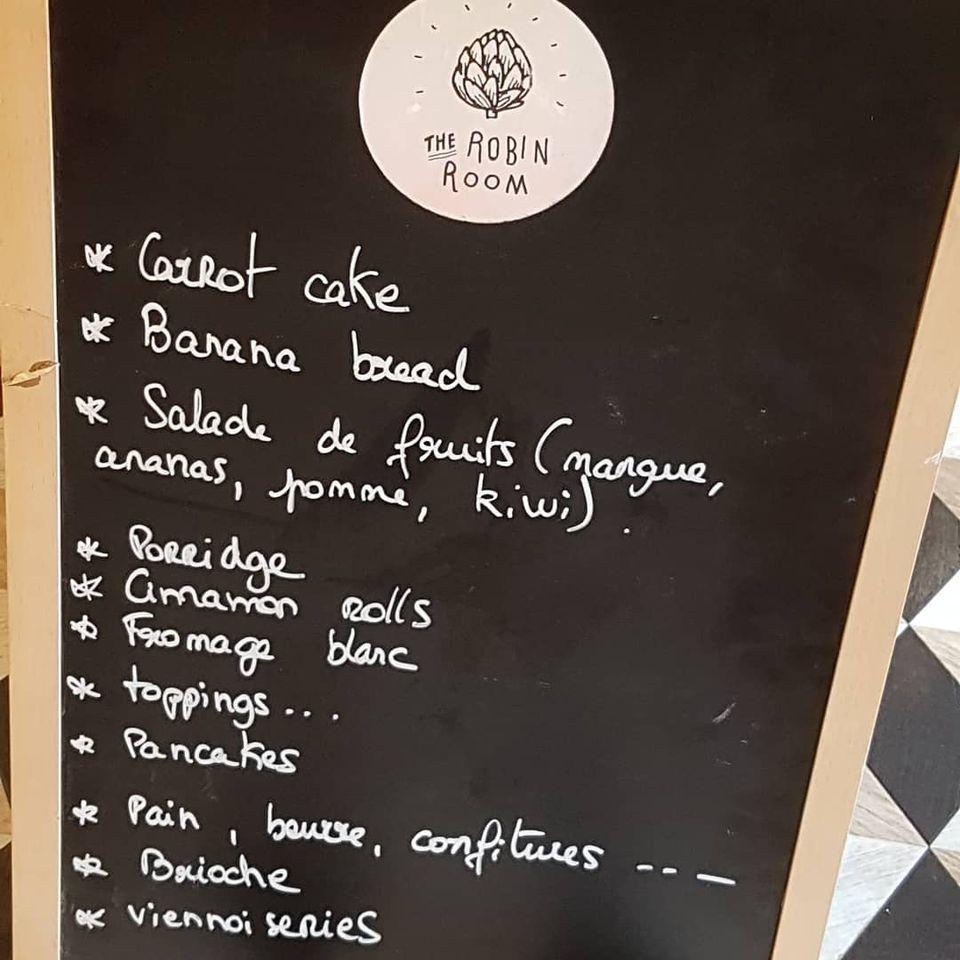 THE ROBIN
ROOM
* Carrot cake
* Banana bread
* Salade de fruits (mangue,
ananas, pomme, kiwi).
* Porridge
* Cinnamon rolls
* Fromage blanc
* toppings...
* Pancakes
* Pain, beurre, confitures ---
* Brioche
* viennoiseries